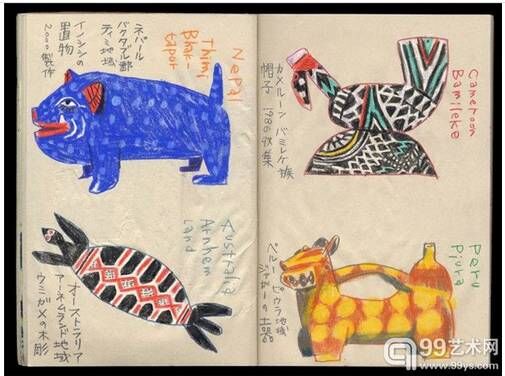 ネパール
バクタプル郡
ティミ地域
イノシシの
置物
2000製作
Nepal
Thimi
Bhak-
tapor
Australia
Arnhem
Land
オーストラリア
アーネムランド地域
ウミガメの木彫
Cameroon
Bamileke
カメルーン バミレケ族
帽子 1986収集
Peru
Piura
ペルー ピウラ地域
の土器
99艺术网
www.99ys.com